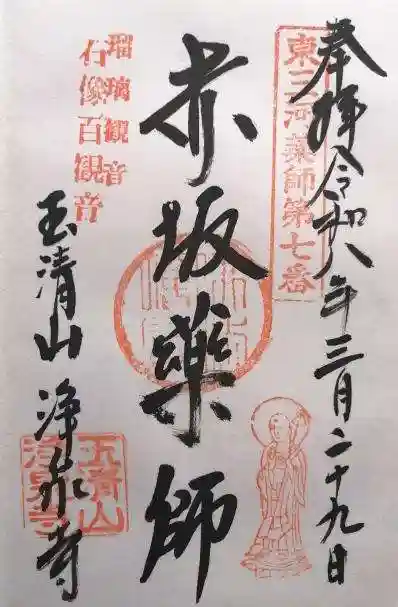 奉拝令和八年三月二十九日
東三河薬師第七番
赤坂薬師
瑠璃観音
石像百観音
玉清山浄泉寺
玉清山
浄泉寺